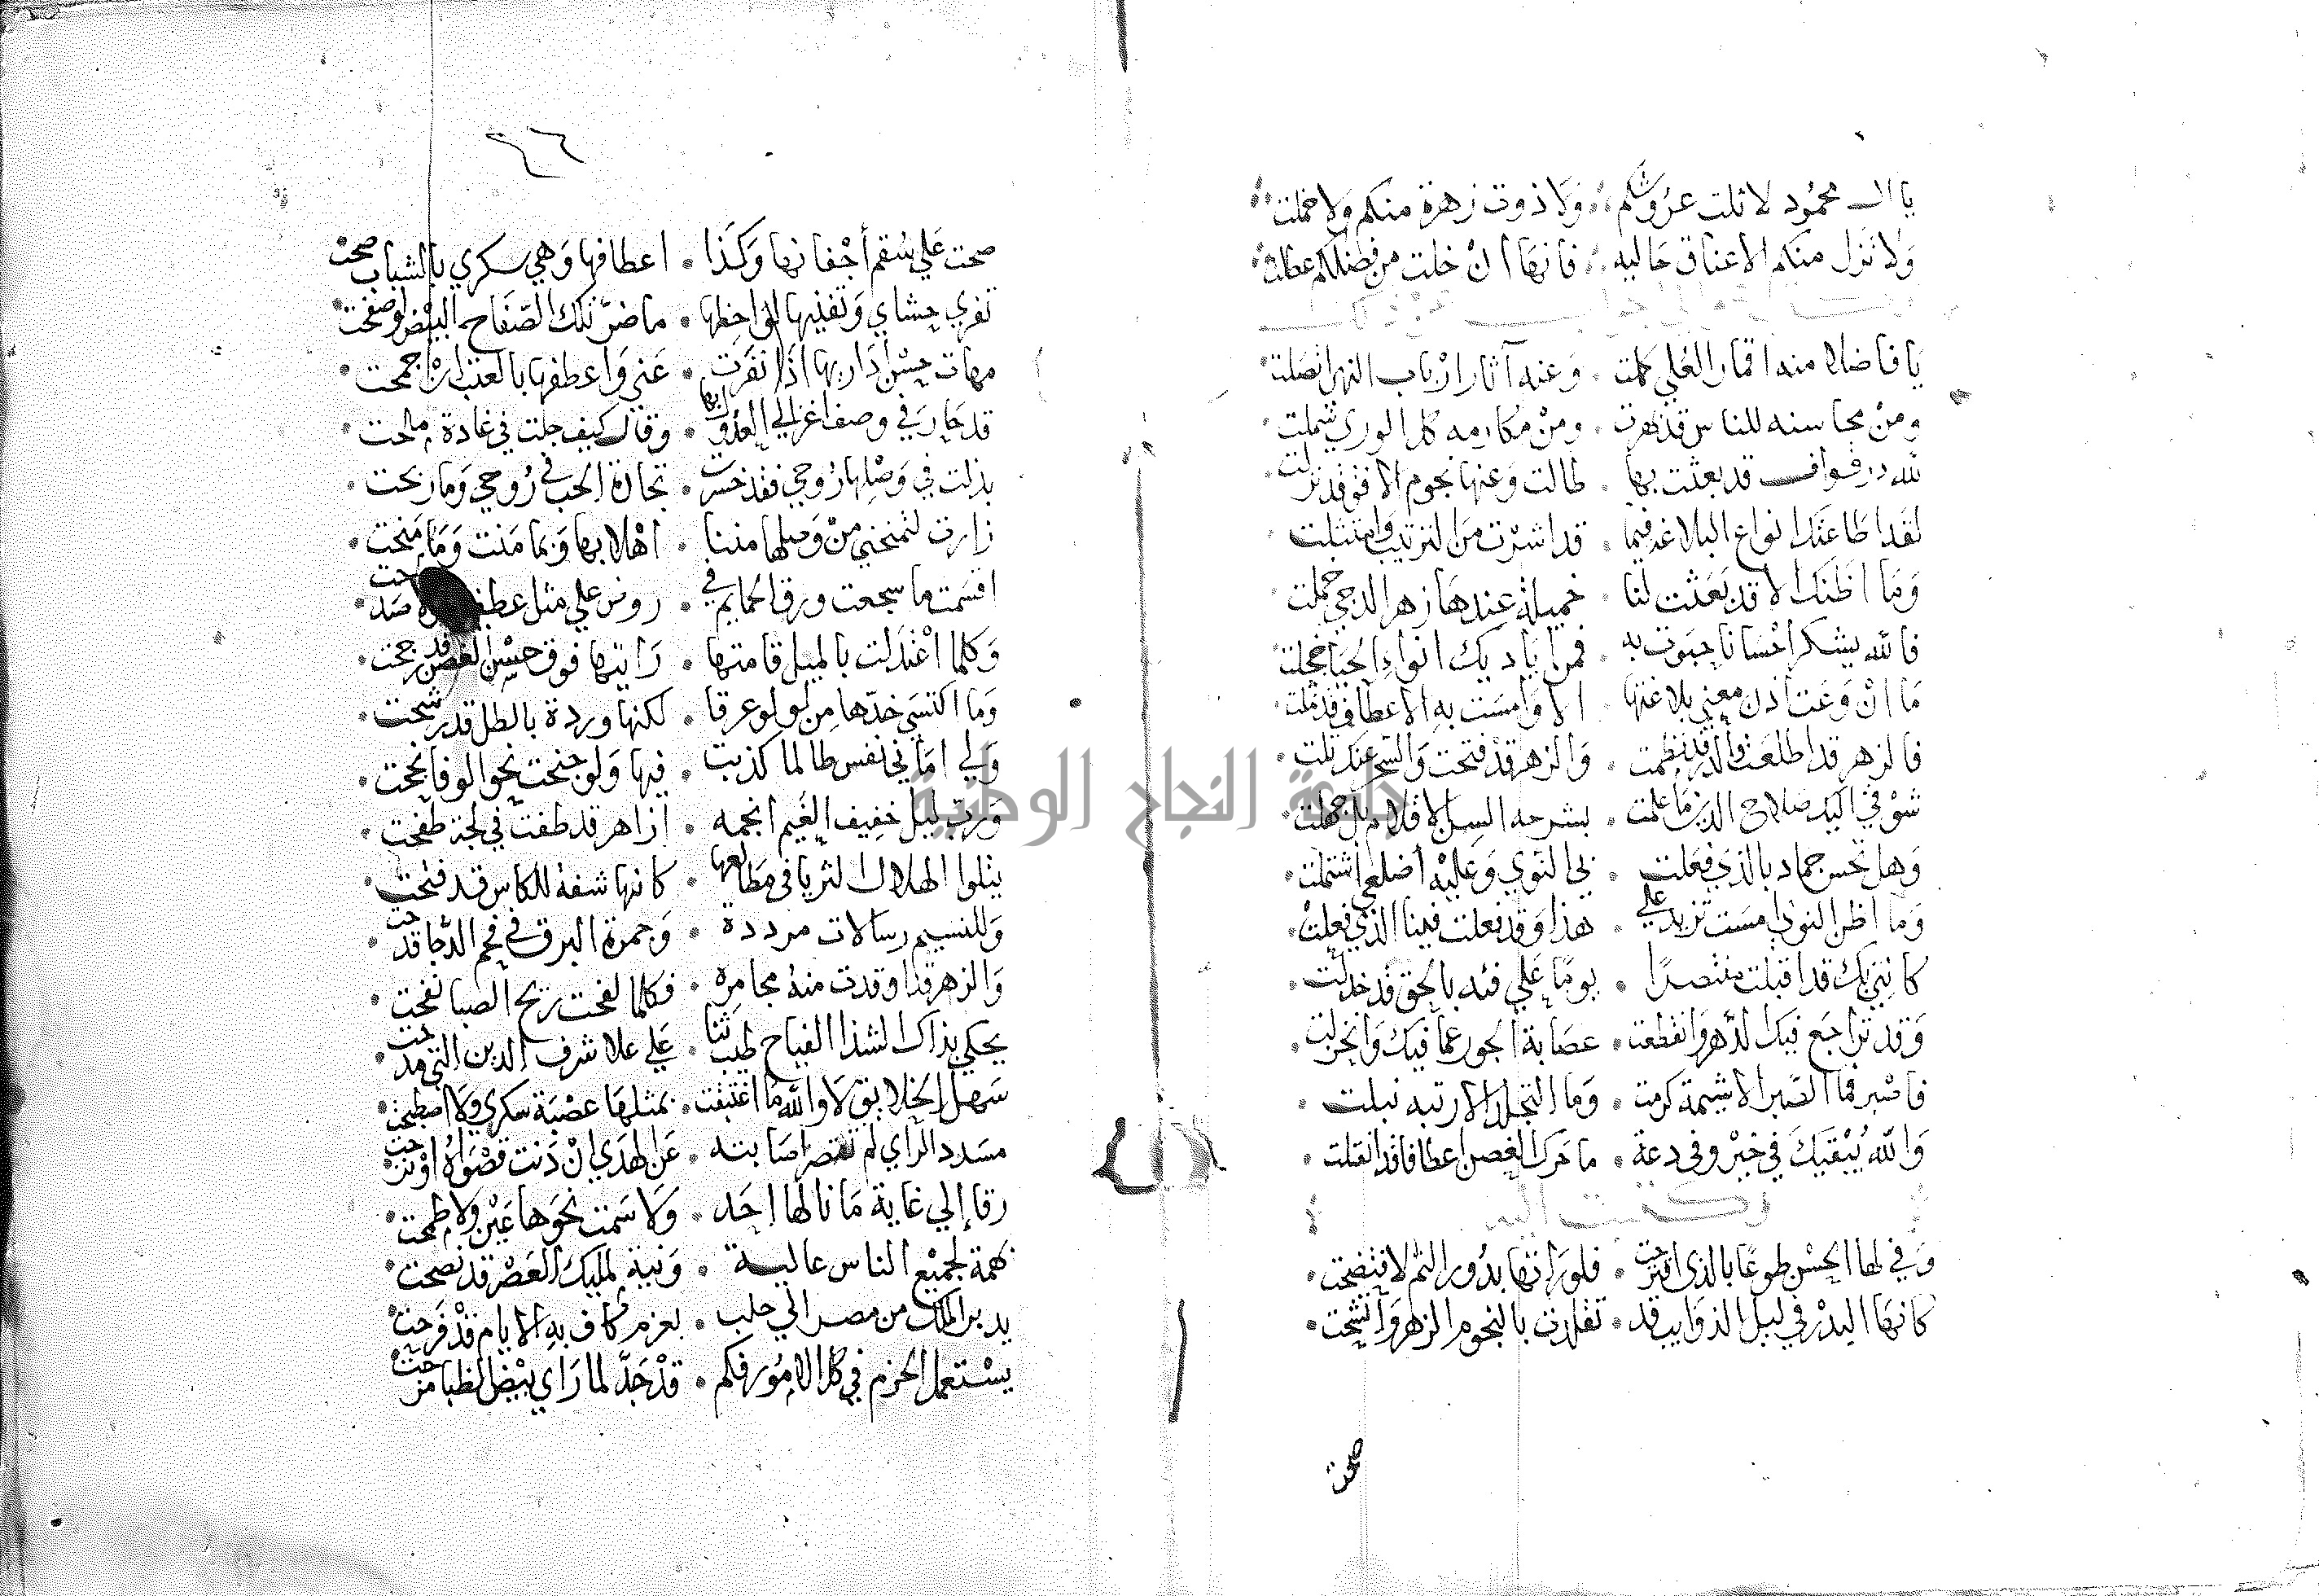 يا ال محمود لا ثلت عروشكم ولا ذوت زهرة منكم ولا خملت
ولا تزل منكم الاعناق حاليه فانها ان خلت من فضلكم عطلت
يا فاضلا منه اقمار العلي كملت وعنه آثار ارباب النهي اتصلت
ومن محاسنه للناس قد بهرت ومن مكارمه كل الوري شملت
لله در قواف قد بعثت بها طالت وعنها نجوم الافق قد نزلت
لقد اطاعتك انواع البلاغه فيما قد اشرت من الترتيب وامتثلت
وما اظنك الا قد بعثت لنا خميلة عندها زهر الدجي خملت
فالله يشكر احسانا حبوت به فمن اياديك انواء الحيا خجلت
ما ان وعت اذن معني بلاغتها الا وامست به الاعطاف قد ثملت
فالزهر قد اطلعت والدر قد نظمت والزهر قد فتحت والسحر عنك تلت
شوقي اليك صلاح الدين ما علمت بشرحه السن الاقلام بل جهلت
وهل تحس جماد بالذي فعلت بي النوي وعليه اضلعي اشتملت
وما اظن النوي امست تزيد علي هذا وقد فعلت فينا الذي فعلت
كانني بك قد اقبلت منتصرا يوما علي فئه بالحق قد خذلت
وقد تراجع فيك الدهر وانقطعت عصابة الجور عما فيك وانخزلت
فاصبر فما الصبر الا شيمة كرمت وما التجلد الا رتبه نبلت
والله يبقيك في خير وفي دعة ما حرك الغصن اعطافا قد انفتلت
وكتبت اليه
وفي لها الحسن طوعا بالذي اقترحت فلو راتها بدور التم لافتضحت
كانها البدر في ليل الذوايب قد تقلدت بالنجوم الزهر واتشحت
صحت
٦٦
صحت علي سقم أجفانها وكذا اعطافها وهي سكري بالشباب صحت
تفري حشاي وتفنيها لواحظها ما ضر تلك الصفاح البيض لو صفحت
مهاة حسن أداريها اذا نفرت عني واعطفها بالعتب ان جمحت
قد حار في وصف اغزالي العذول بها وقال كيف حلت في غادة ملحت
بذلت في وصلها روحي فقد خسرت تجارة الحب في روحي وما ربحت
زارت لتمنحني من وصلها مننا اهلا بها وبما منت وما منحت
اقسمت ما سجعت ورق الحمايم في روض علي مثل صدحت
وكلما اعتدلت بالميل قامتها رايتها فوق حسن الغصن قد رجحت
وما اكتسي خدها من لولو عرقا لكنها وردة بالطل قد رشحت
ولي اماني نفس طالما كذبت فيها ولو جنحت نحو الوفا نجحت
ورب ليل خفيف الغيم انجمه ازاهر قد طفت في لجة طفحت
يتلوا الهلال الثريا في مطالعها كانها شفة للكاس قد فتحت
وللنسيم رسالات مرددة وجمرة البرق في فحم الدجا قدحت
والزهر قد اوقدت منه مجامره فكلما لفحت ريح الصبا نفحت
يحكي بذاك الشذا الفياح طيب ثنا علي علا شرف الدين التي مدحت
سهل الخلايق لا والله ما اغتبقت بمثلها عصبة سكري ولا اصطبحت
مسدد الراي لم تقصر اصابته عن الهدي ان دنت قصواه او نزحت
رقا إلي غاية ما نالها احد ولا سمت نحوها عين ولا طمحت
بهمة لجميع الناس عالية ونية لمليك العصر قد نصحت
يدبر الملك من مصر الي حلب بعزم كاف به الايام قد فرحت
يستعمل الحزم في كل الامور فكم قد جد لما راي بيض الظبا مزحت
جامعة النجاح الوطنية